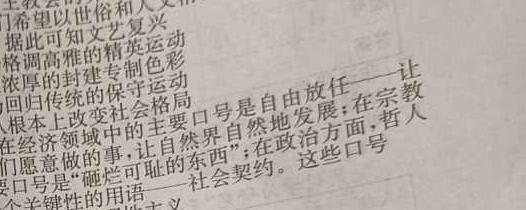 们希望以世俗和人文精
据此可知文艺复兴
格调高雅的精英运动
浓厚的封建专制色彩
回归传统的保守运动
人根本上改变社会格局
在经济领域中的主要口号是自由放任——让
们愿意做的事,让自然界自然地发展;在宗教
要口号是“砸烂可耻的东西”;在政治方面,哲人
个关键性的用语——社会契约。这些口号